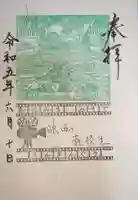 奉拝
令和五年六月十日
映画
高校生